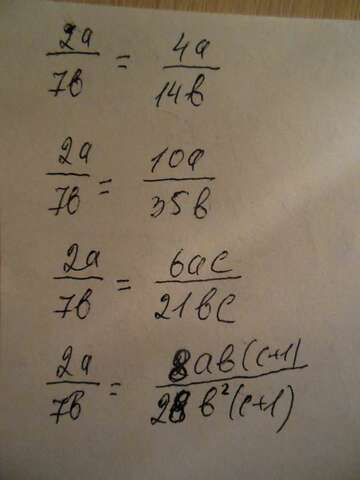 2a/7b = 4a/14b
2a/7b = 10a/35b
2a/7b = 6ac/21bc
2a/7b = 8ab(c+1)/28b²(c+1)